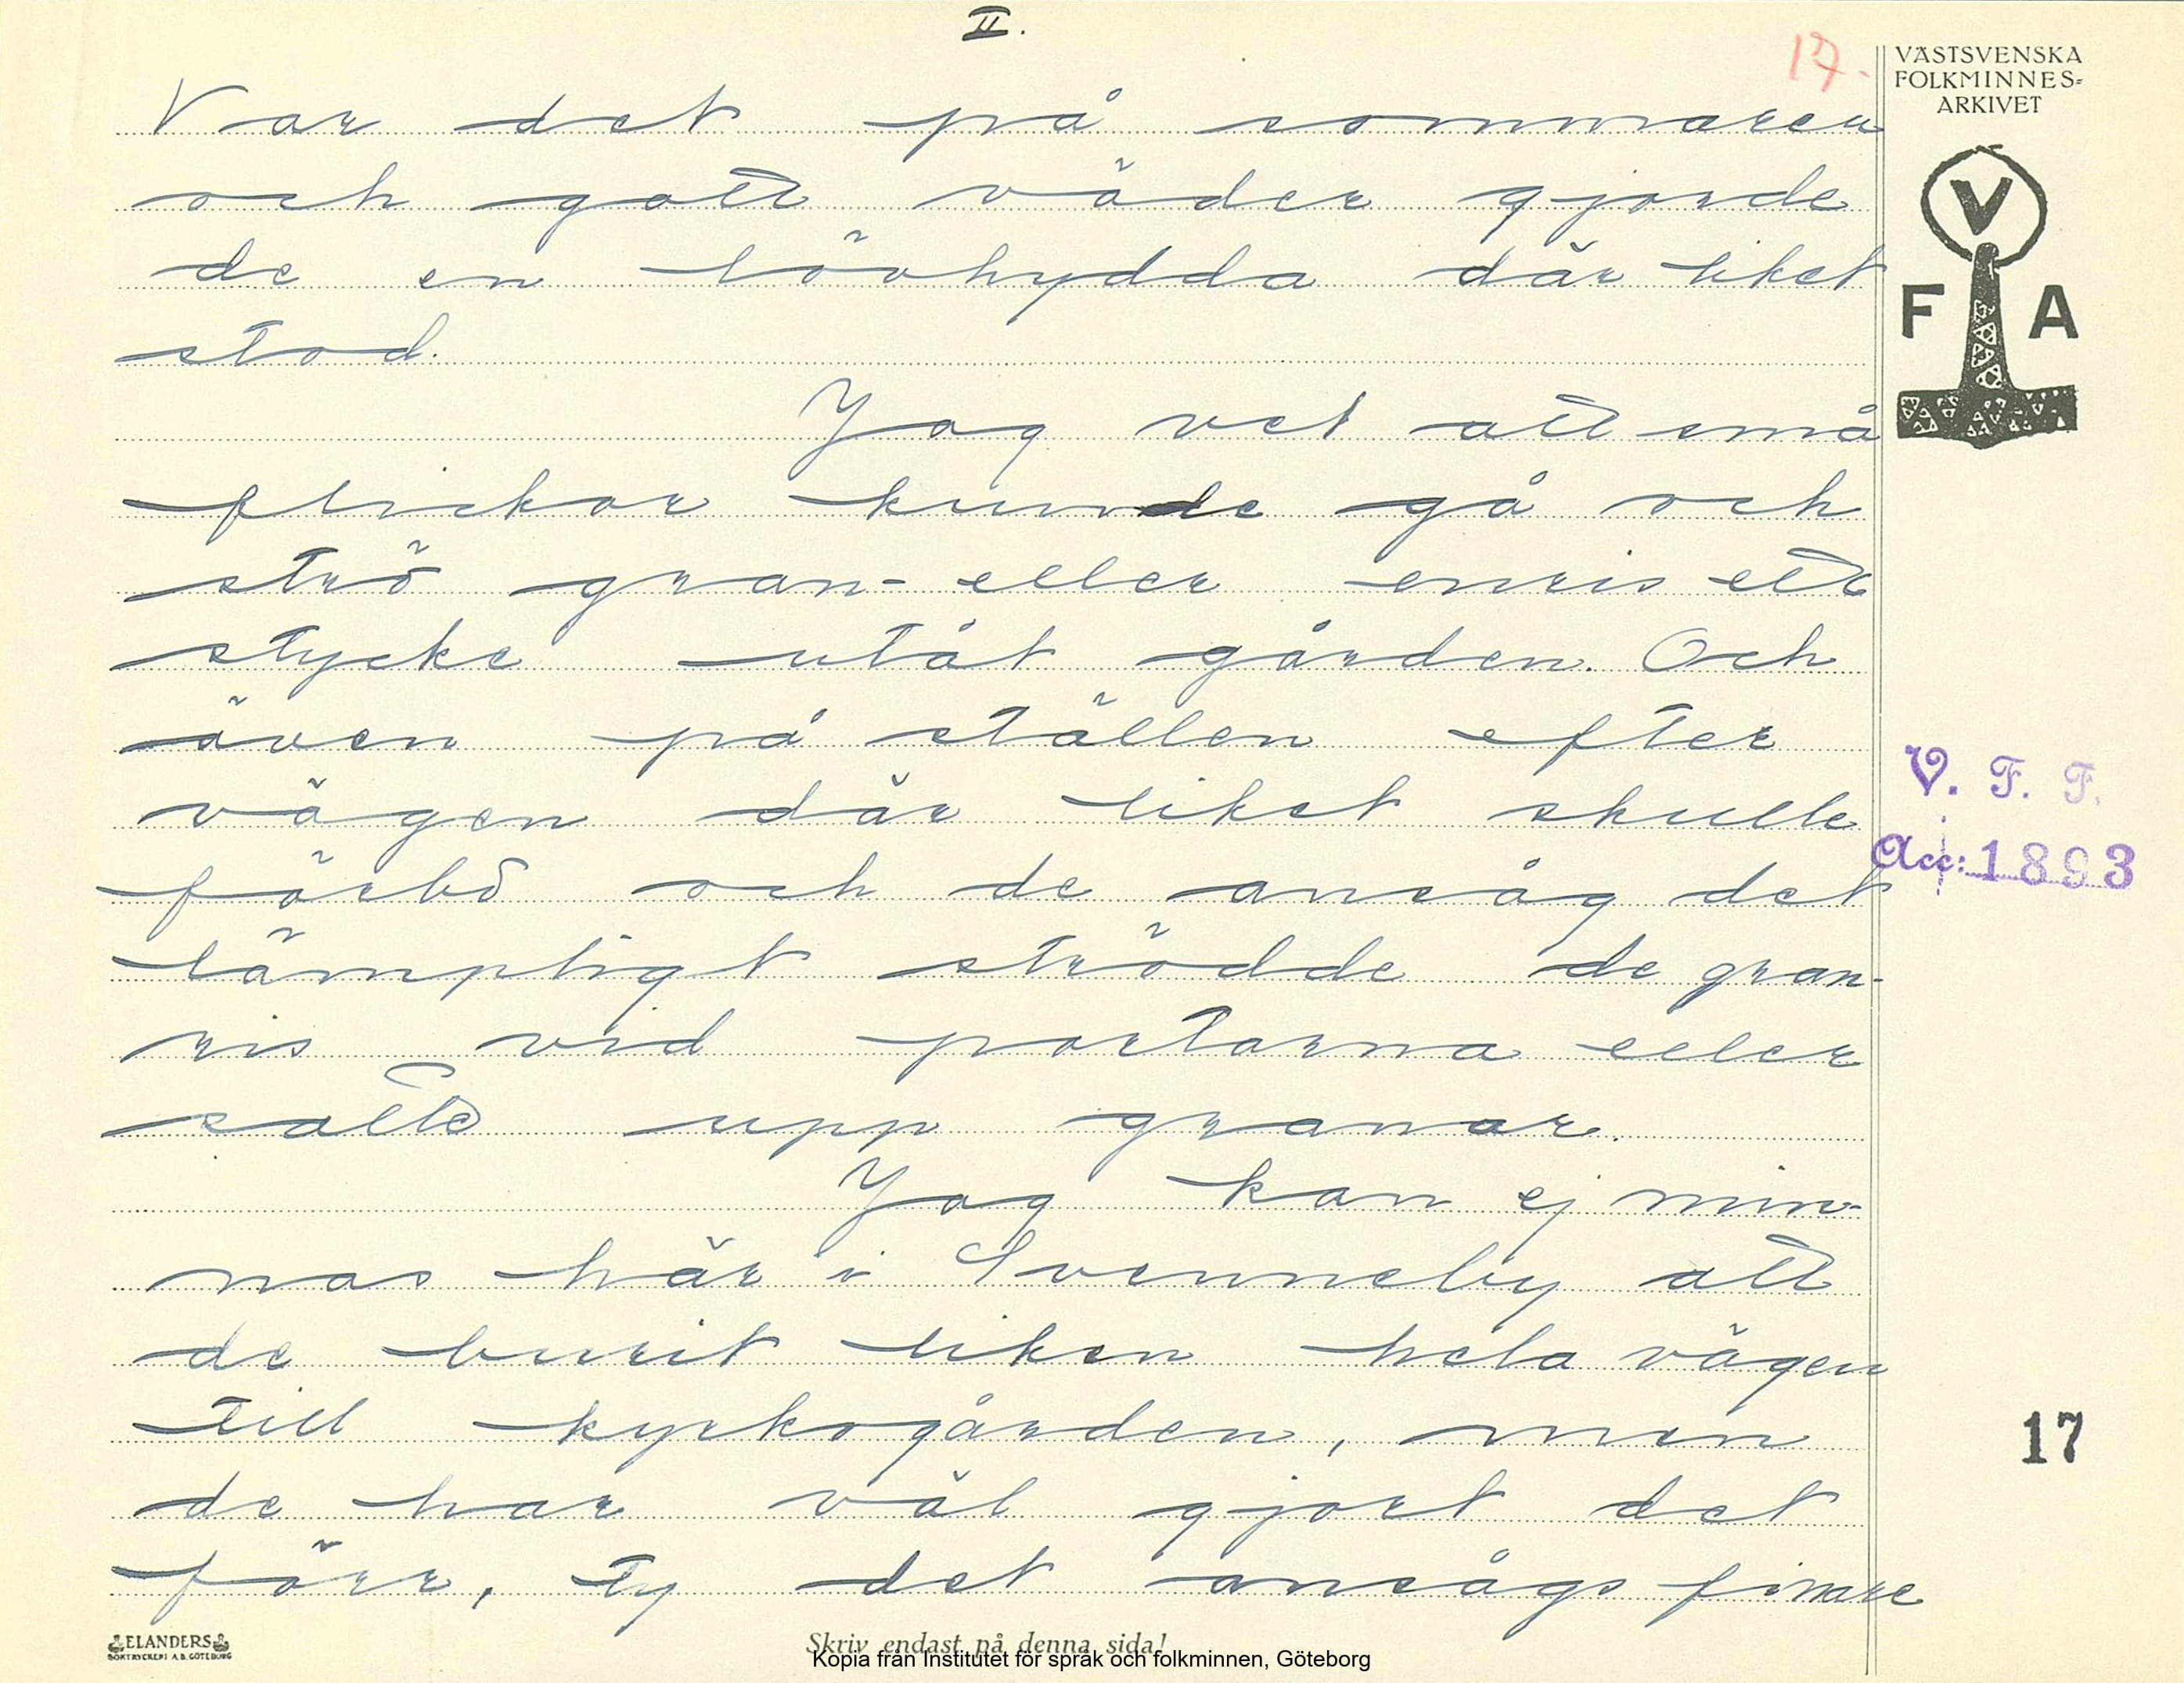 II.
17.
VÄSTSVENSKA
FOLKMINNES=
ARKIVET
V
F A
Var det på sommaren
och gott väder gjorde
de en lövhydda där liket
stod.
Jag vet att små
flickor kunde gå och
strö gran- eller enris ett
stycke utåt gården. Och
även på ställen efter
vägen där liket skulle
förbi och de ansåg det
lämpligt strödde de gran-
ris vid portarna eller
satte upp granar.
Jag kan ej min-
nas här i Svenneby att
de burit liken hela vägen
till kyrkogården, men
de har väl gjort det
förr, ty det ansågs finare
V. F. F.
Acc: 1893
17
ELANDERS
BOKTRYCKERI A.B. GÖTEBORG
Skriv endast på denna sida!
Kopia från Institutet för språk och folkminnen, Göteborg